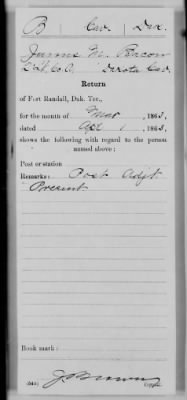 B Cav. Dak.
James M. Bacon
2" Lt, Co. A, Dakota Cav.
Return
of Fort Randall, Dak. Ter.,
for the month of Mar, 1863,
dated Apr 1, 1863,
shows the following with regard to the person
named above:
Post or station
Remarks: Post Adjt.
Present
Book mark:
(544) J. Brown
Copyist.